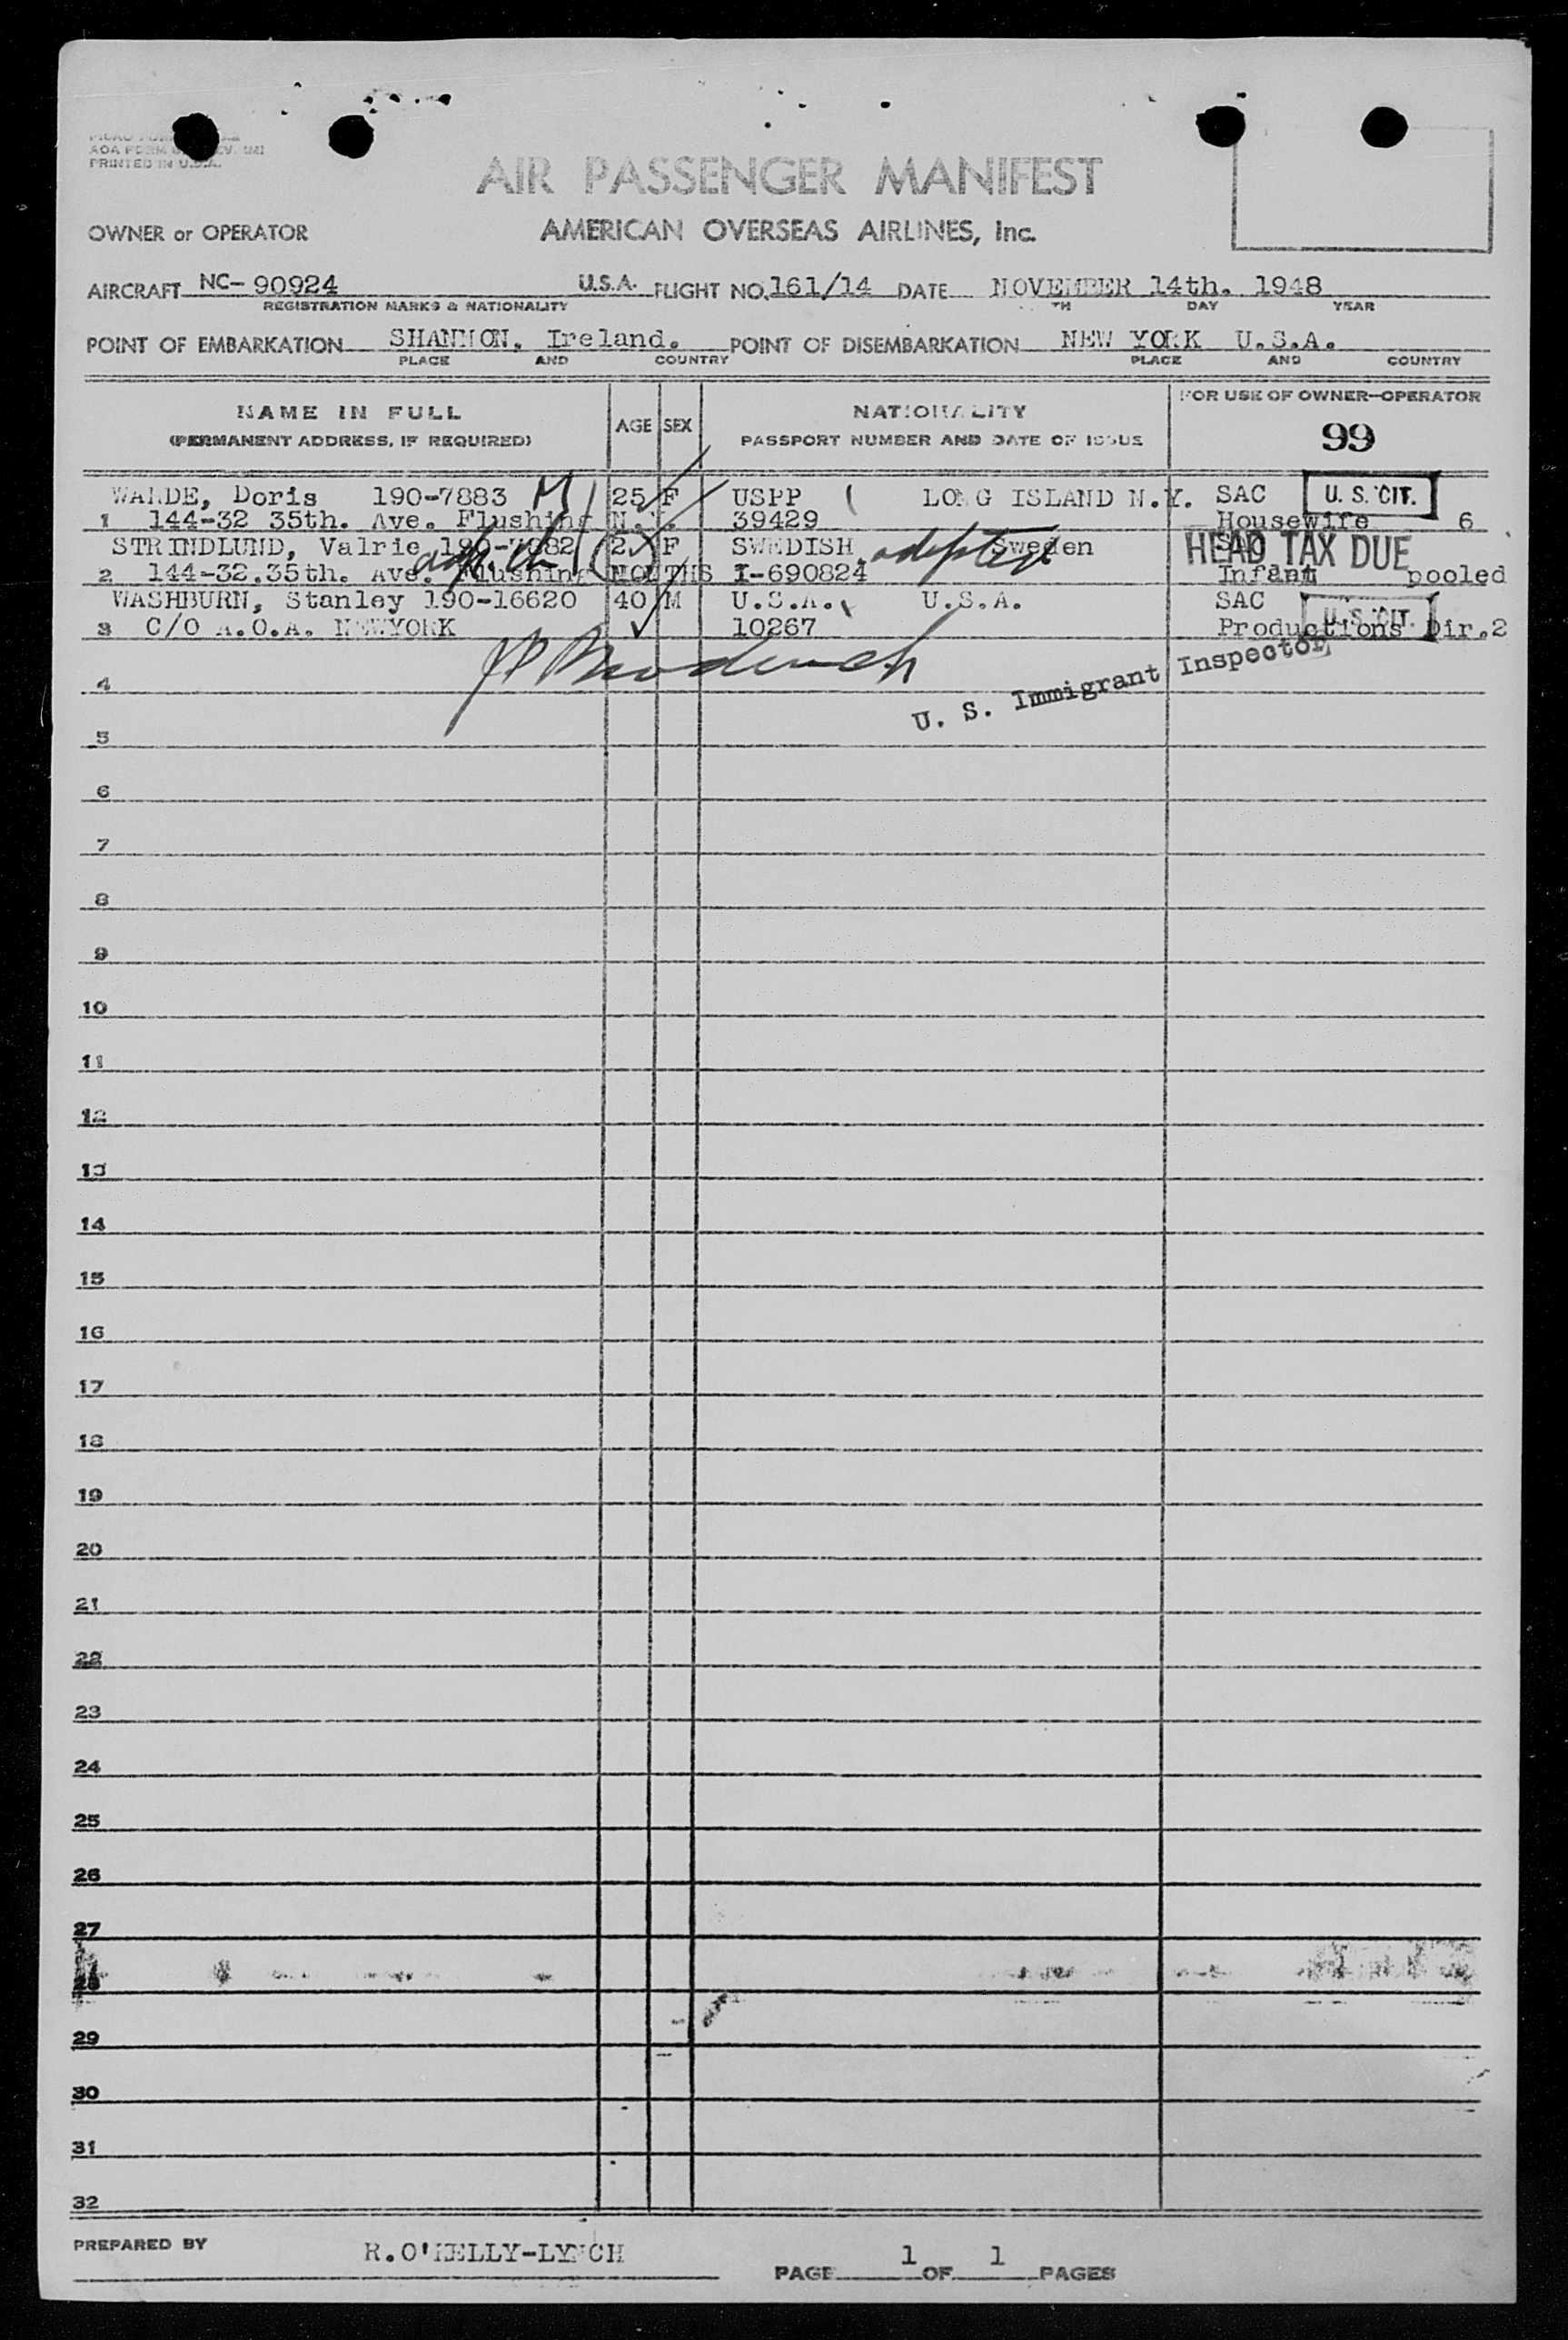 AOA FORM
PRINTED IN U.S.A.
AIR PASSENGER MANIFEST
OWNER or OPERATOR AMERICAN OVERSEAS AIRLINES, Inc.
AIRCRAFT NC- 90924 U.S.A. FLIGHT NO. 161/14 DATE NOVEMBER 14th. 1948
REGISTRATION MARKS & NATIONALITY TH DAY YEAR
POINT OF EMBARKATION SHANNON. Ireland. POINT OF DISEMBARKATION NEW YORK U.S.A.
PLACE AND COUNTRY PLACE AND COUNTRY
NAME IN FULL AGE SEX NATIONALITY FOR USE OF OWNER-OPERATOR
(PERMANENT ADDRESS, IF REQUIRED) PASSPORT NUMBER AND DATE OF ISSUE 99
Doris 190-7883 M 25 F USPP LONG ISLAND N.Y. SAC U. S. CIT.
1 144-32 35th. Ave. Flushing N.Y. 39429 Housewife 6
STRINDLUND, Valrie 2 F SWEDISH adopted Sweden SAC HEAD TAX DUE
2 144-32.35th. Ave. Flushing MONTHS I-690824 Infant pooled
WASHBURN, Stanley 190-16620 40 M U.S.A. U.S.A. SAC U. S. CIT.
3 C/O A.O.A. NEWYORK 10267 Productions Dir.2
U. S. Immigrant Inspector
4
5
6
7
8
9
10
11
12
13
14
15
16
17
18
19
20
21
22
23
24
25
26
27
28
29
30
31
32
PREPARED BY R.O'KELLY-LYNCH
PAGE 1 OF 1 PAGES